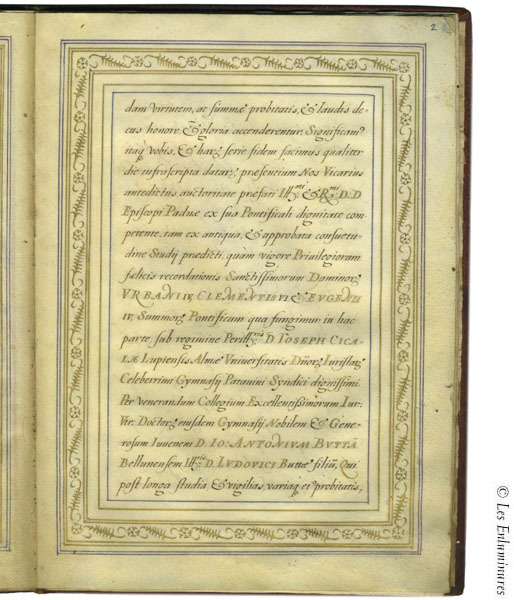 2
dam virtutem, ac summæ probitatis, & laudis de-
cus honore & gloria accenderentur, Significam9
itaq vobis, & harȝ serie fidem facimus qualiter
die infrascripta datarȝ præsentium Nos Vicarius
antedictus auctoritate præfati Ill.mi & R.mi D.D
Episcopi Paduæ ex sua Pontificali dignitate com-
petente, tam ex antiqua, & approbata consuetu-
dine Studij prædicti, quàm vigore Priuilegiorum
fælicis recordationis Sanctissimorum Dominorȝ
VRBANI IV, CLEMENTIS VI & EVGENII
IV, Summorȝ Pontificum qua fungimur in hac
parte sub regimine Perill.ris D. IOSEPH CICA-
LÆ Lupiensis Almæ Vniuersitatis Dñorȝ Iuristarȝ
Celeberrimi Gymnasij Patauini Syndici dignissimi.
Per venerandum Collegium Excellentissimorum Iur.
Vtr. Doctorȝ eiusdem Gymnasij Nobilem & Gene-
rosum Iuuenem D. IO: ANTONIVM BVTTÃ
Bellunensem Ill.ris D. LVDOVICI Buttæ filiũ, Qui
post longa studia & vigilias, variaq et probitatis,
© Les Enluminures